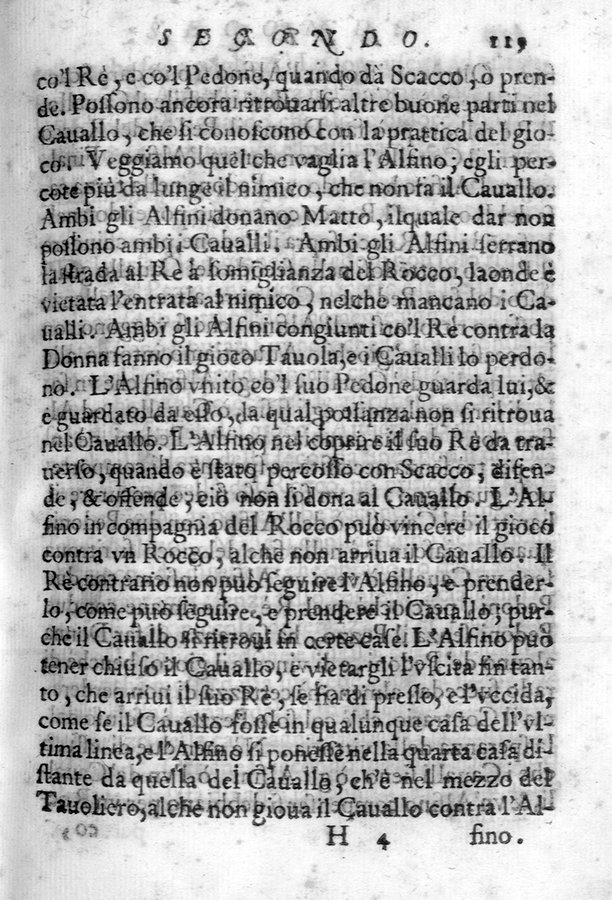 SECONDO. 119
co'l Rè, e co'l Pedone, quando dà Scacco, ò pren-
de. Possono ancora ritrouarsi altre buone parti nel
Cauallo, che si conoscono con la prattica del gio-
co. Veggiamo quel che vaglia l'Alfino; egli per-
cote più da lunge il nimico, che non fa il Cauallo.
Ambi gli Alfini donano Matto, ilquale dar non
possono ambi i Caualli. Ambi gli Alfini serrano
la strada al Rè à somiglianza del Rocco, laonde è
vietata l'entrata al nimico, nelche mancano i Ca-
ualli. Ambi gli Alfini congiunti co'l Rè contra la
Donna fanno il gioco Tauola, e i Caualli lo perdo-
no. L'Alfino vnito co'l suo Pedone guarda lui, &
è guardato da esso, da qual possanza non si ritroua
nel Cauallo. L'Alfino nel coprire il suo Rè da tra-
uerso, quando è stato percosso con Scacco, difen-
de, & offende, ciò non si dona al Cauallo. L'Al-
fino in compagnia del Rocco può vincere il gioco
contra vn Rocco, alche non arriua il Cauallo. Il
Rè contrario non può seguire l'Alfino, e prender-
lo, come può seguire, e prendere il Cauallo; pur-
che il Cauallo si ritroui in certe case. L'Alfino può
tener chiuso il Cauallo, e vietargli l'vscita fin tan-
to, che arriui il suo Rè, se ha di presso, e l'vccida,
come se il Cauallo fosse in qualunque casa dell'vl-
tima linea, e l'Alfino si ponesse nella quarta casa di-
stante da quella del Cauallo, ch'è nel mezzo del
Tauoliero, alche non gioua il Cauallo contra l'Al-
H 4 fino.